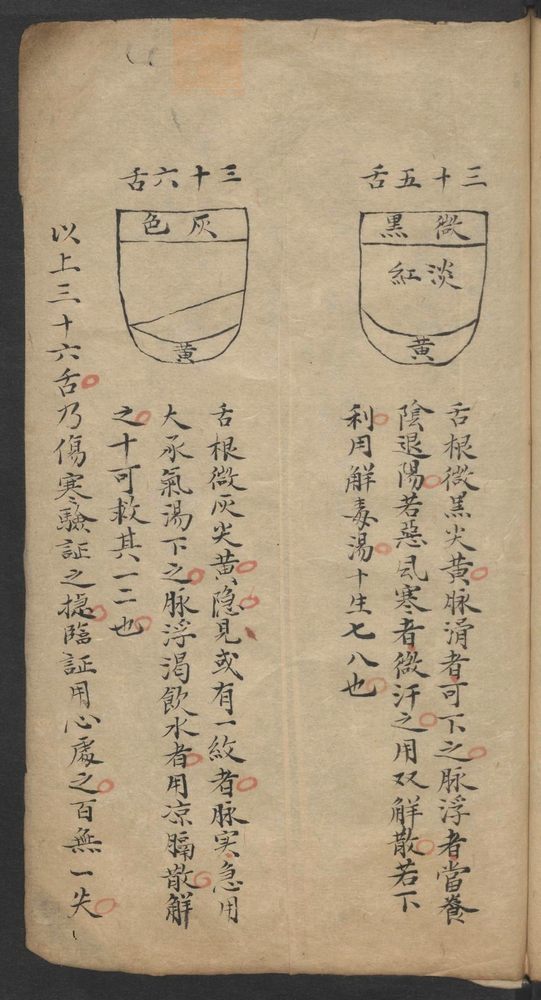 三十五舌
微黑
淡紅
黃
舌根微黑尖黃脉滑者可下之脉浮者當養
陰退陽若惡風寒者微汗之用双解散若下
利用解毒湯十生七八也
三十六舌
灰色
黃
舌根微灰尖黃隐見或有一紋者脉实急用
大承氣湯下之脉浮渴飲水者用凉膈散解
之十可救其一二也
以上三十六舌乃傷寒驗証之捷臨証用心處之百無一失